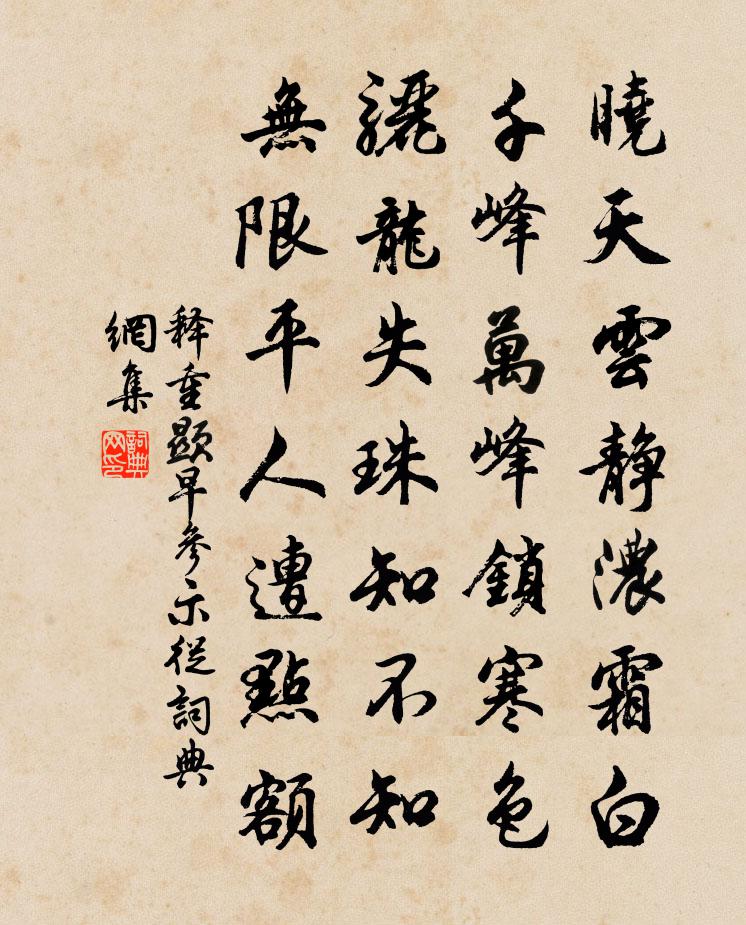 曉天雲靜濃霜白
千峰萬峰鎖寒色
驪龍失珠知不知
無限平人遭點額
释重顯早參示從詞典
網集
詞典網印